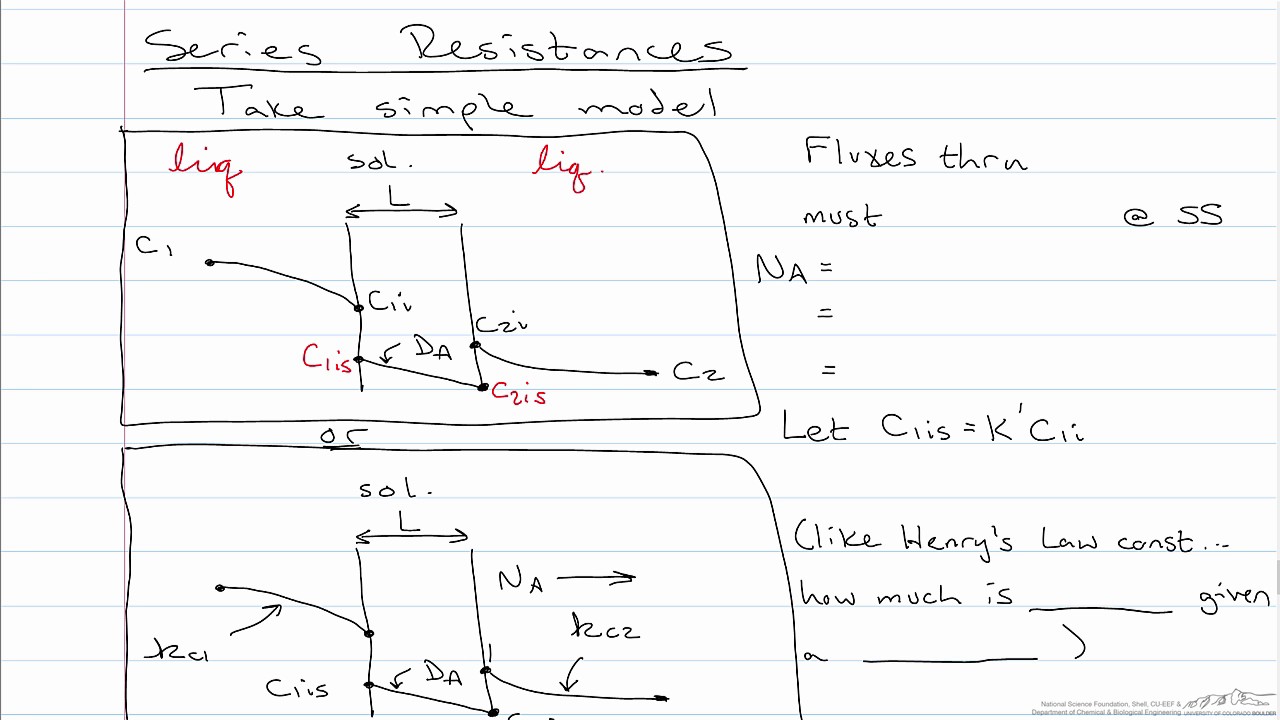 Series Resistances
Take simple model
liq sol. liq.
L
C1
C1i
C2i
C1is
DA
C2
C2is
or
sol.
L
NA
kc1
kc2
C1is
DA
Fluxes thru
must @ SS
NA =
=
=
Let C1is = K'C1i
(like Henry's Law const...
how much is ________ given
a ________ )
National Science Foundation, Shell, CU-EEF &
Department of Chemical & Biological Engineering UNIVERSITY OF COLORADO BOULDER